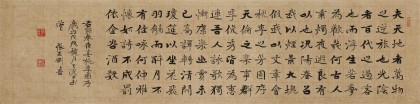 夫天地者萬物
之逆旅也光陰
者百代之過客
也而浮生若夢
為歡幾何古人
秉燭夜遊良有
以也況陽春召
我以煙景大塊
假我以文章會
桃李之芳園序
天倫之樂事群
季俊秀皆為惠
連吾人詠歌獨
慚康樂幽賞未
已高談轉清開
瓊筵以坐花飛
羽觴而醉月不
有佳詠何伸雅
懷如詩不成罰
依金谷酒數